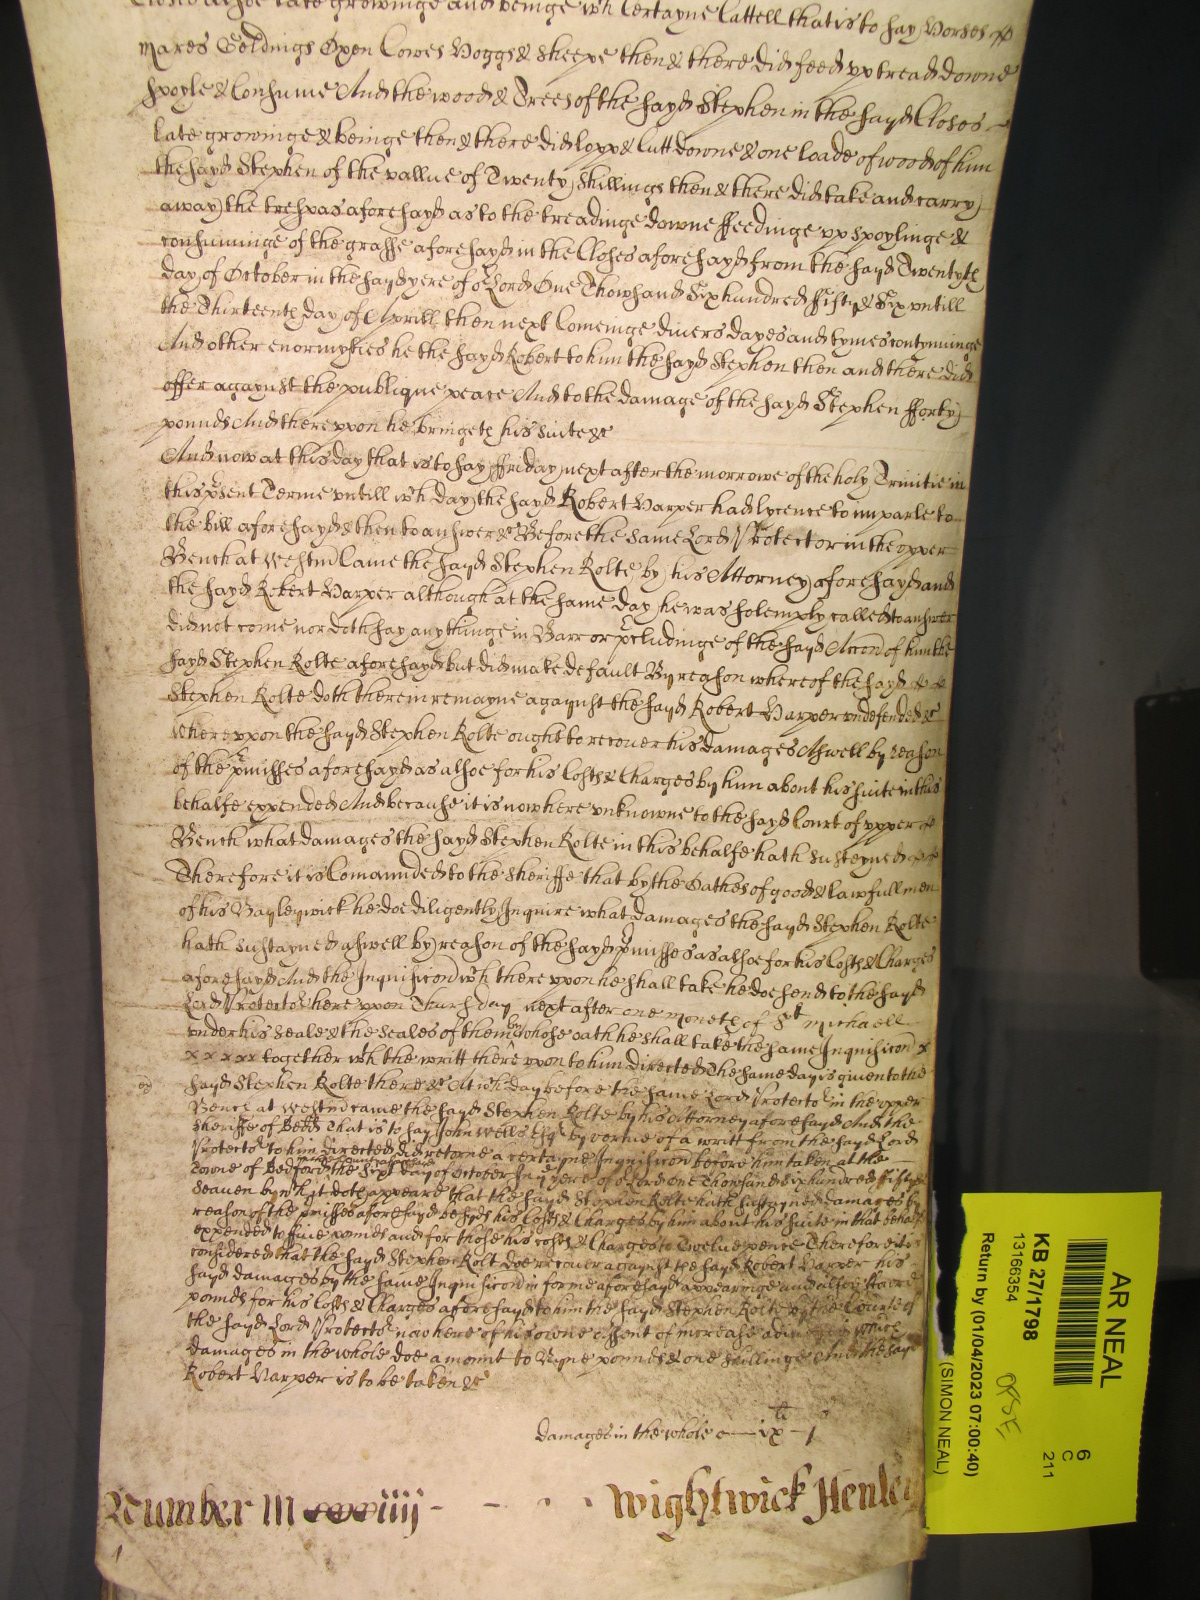 late growinge and beinge wth Certayne Cattell that is to say Horses
Mares Geldings Oxen Cowes Hoggs & Sheepe then & there did feed upp tread downe
spoyle & Consume And the wood & Trees of the sayd Stephen in the sayd Closes
late growinge & beinge then & there did lopp & Cutt downe & one loade of wood of him
the sayd Stephen of the vallue of Twenty shillings then & there did take and carry
away the trespas aforesayd as to the treadinge downe ffeedinge upp spoylinge &
consuminge of the grasse aforesayd in the Closes aforesayd from the sayd Twentyth
day of October in the sayd yere of or Lord One Thowsand Six hundred ffifty & Six untill
the Thirteenth day of Aprill then next Comeinge divers dayes and tymes contynuinge
And other enormyties he the sayd Robert to him the sayd Stephen then and there did
offer agaynst the publique peace And to the damage of the sayd Stephen fforty
pounds And thereuppon he bringeth his suite &c
And now at this day that is to say ffriday next after the morrowe of the holy Trinitie in
this psent Terme untill wch day the sayd Robert Harper had lycence to imparle to
the bill aforesayd & then to answer &c Before the same Lord Protector in the upper
Bench at Westmr Came the sayd Stephen Rolte by his Attorney aforesayd and
the sayd Robert Harper although at the same day he was solemply called to answer
did not come nor doth say any thinge in Barr or pcludinge of the sayd Accon of him the
sayd Stephen Rolte aforesayd but did make default By reason whereof the sayd
Stephen Rolte doth therein remayne agaynst the sayd Robert Harper undefended &c
Whereuppon the sayd Stephen Rolte ought to recover his damages Aswell by reason
of the pmisses aforesayd as alsoe for his Costs & Charges by him about his suite in this
behalfe expended And because it is now here unknowne to the sayd Court of upper
Bench what damages the sayd Stephen Rolte in this behalfe hath susteyned
Therefore it is Comaunded to the Sheriffe that by the Oathes of good & lawfull men
of his Bayleywick he doe diligently Inquire what damages the sayd Stephen Rolte
hath sustayned aswell by reason of the sayd pmisses as alsoe for his Costs & Charges
aforesayd And the Inquisicon wch thereuppon he shall take he doe send to the sayd
Lord Protector here uppon Thursday next after one moneth of St Michaell
under his seale & the seales of them by whose oath he shall take the same Inquisicon
together wth the writt thereuppon to him directed The same day is given to the
sayd Stephen Rolte there &c At wch day before the same Lord Protector in the upper
Bench at Westmr came the sayd Stephen Rolte by his Attorney aforesayd And the
Sheriffe of Bedd That is to say John Wells Esqr by vertue of a writt from the sayd Lord
Protector to him directed did retorne a certayne Inquisicon before him taken at the
Towne of Bedford the Sixt day of October In ye yere of or Lord One Thowsand six hundred ffifty &
Seaven by wch it doth appeare that the sayd Stephen Rolte hath sustayned damages by
reason of the pmisses aforesayd besyds his Costs & Charges by him about his suite in that behalfe
expended to ffive pounds and for those his costs & Charges to Twelve pence Therefore it is
considered that the sayd Stephen Rolt doe recover agaynst the sayd Robert Harper his
sayd damages by the same Inquisicon in forme aforesayd appearinge And alsoe ffower
pounds for his Costs & Charges aforesayd to him the sayd Stephen Rolte by the Courte of
the sayd Lord Protector now here of his owne assent of increase adiudged which
damages in the whole doe amount to Nyne pounds & one shillinge And the sayd
Robert Harper is to be taken &c
damages in the whole ixli – js
Number m iiij
Wightwick Henley
AR NEAL
KB 27/1798
13166354
Return by (01/04/2023 07:00:40)
(SIMON NEAL)
6
C
211